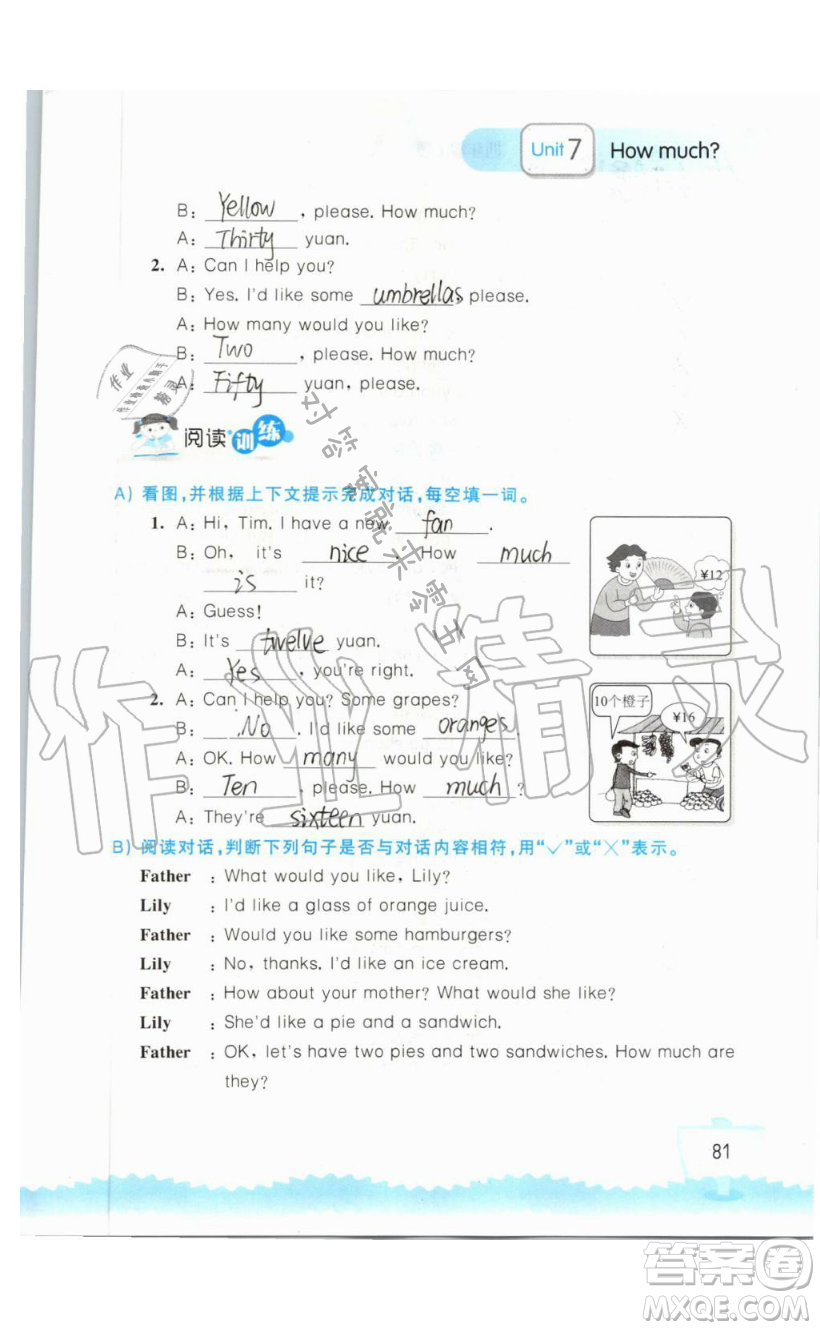 Unit 7 How much?
B: Yellow, please. How much?
A: Thirty yuan.
2. A: Can I help you?
B: Yes. I'd like some umbrellas please.
A: How many would you like?
B: Two, please. How much?
A: Fifty yuan, please.
阅读训练
A) 看图，并根据上下文提示完成对话，每空填一词。
1. A: Hi, Tim. I have a new fan.
B: Oh, it's nice. How much
is it?
A: Guess!
B: It's twelve yuan.
A: Yes, you're right.
¥12
2. A: Can I help you? Some grapes?
B: No. I'd like some oranges.
A: OK. How many would you like?
B: Ten, please. How much?
A: They're sixteen yuan.
10个橙子
¥16
B) 阅读对话，判断下列句子是否与对话内容相符，用“✓”或“×”表示。
Father: What would you like, Lily?
Lily: I'd like a glass of orange juice.
Father: Would you like some hamburgers?
Lily: No, thanks. I'd like an ice cream.
Father: How about your mother? What would she like?
Lily: She'd like a pie and a sandwich.
Father: OK, let's have two pies and two sandwiches. How much are
they?
81
作业精灵
对答案就来零五网
答案圈
MXQE.COM